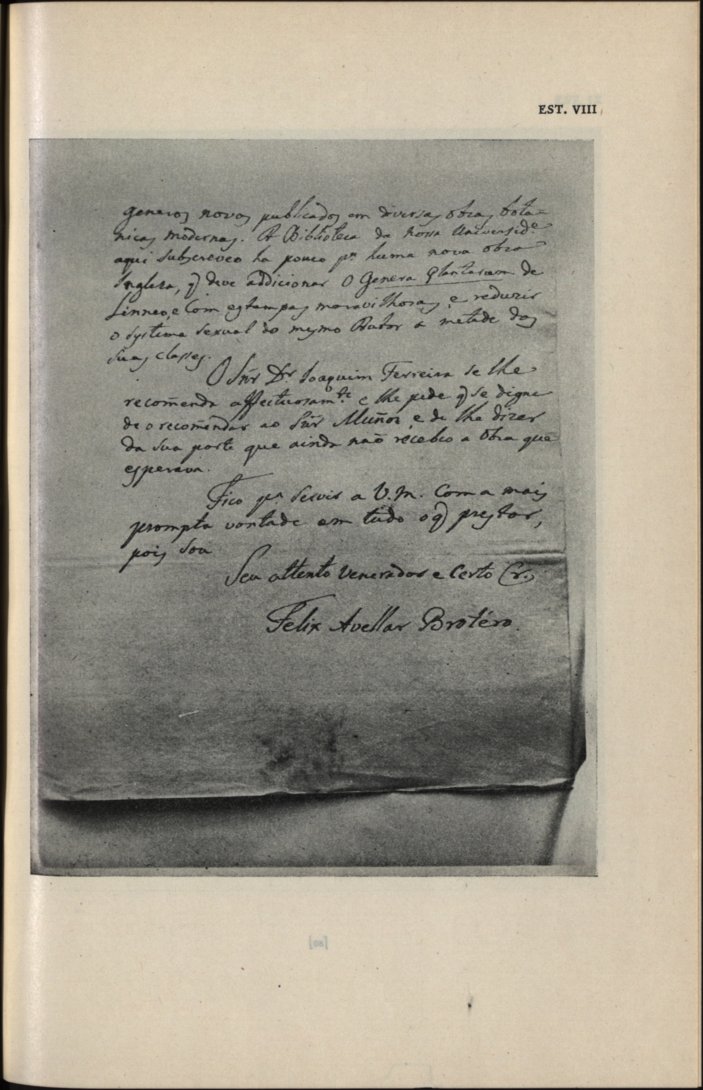 EST. VIII
generos novos publicados em diversas obras bota-
nicas modernas. A Biblioteca da nossa Universid.e
aqui subscreveo ha pouco p.a huma nova obra
Ingleza, q̃ deve addicionar o Genera Plantarum de
Linneo, e com estampas maravilhosas, e reduzir
o systema sexual do mesmo Autor a metade das
suas classes.
O Sñr D.r Joaquim Ferreira se lhe
recom̃enda affectuosam.te e lhe pede q̃ se digne
de o recom̃endar ao Sñr Muñoz, e de lhe dizer
da sua parte que ainda naõ recebeo a obra que
esperava.
Fico p.a servir a V.M. com a mais
prompta vontade em tudo o q̃ prestar,
pois sou
Seu attento Venerador e certo Cr.
Felix Avellar Brotéro.